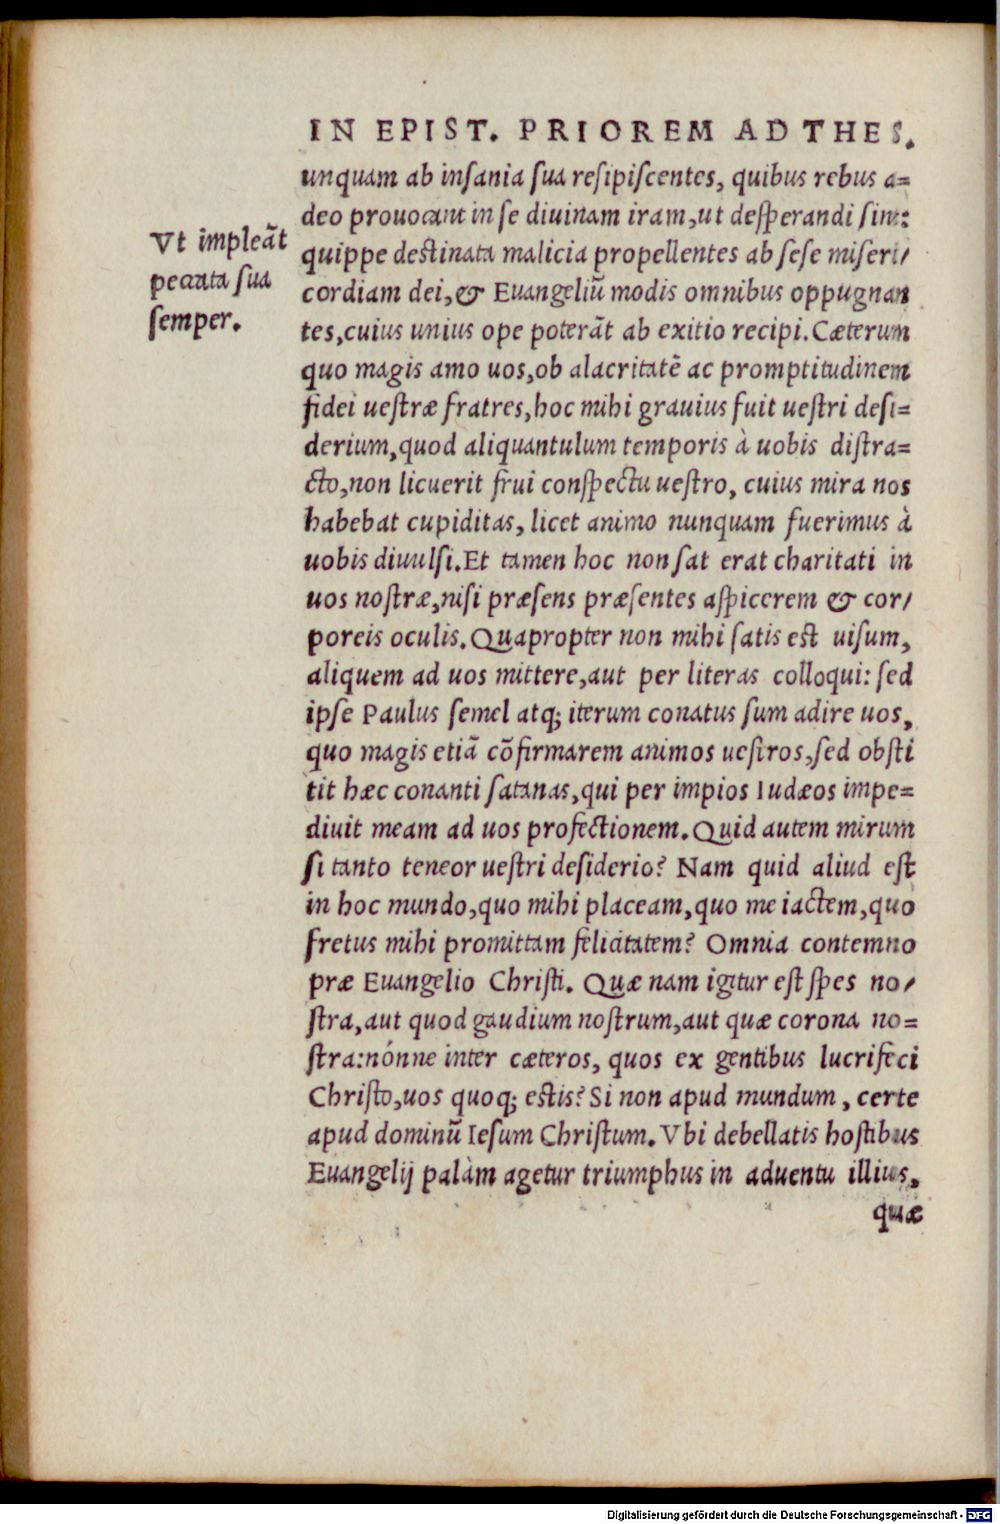 IN EPIST. PRIOREM AD THES.
unquam ab insania sua resipiscentes, quibus rebus a=
deo prouocant in se diuinam iram, ut desperandi sint:
Vt impleãt
peccata sua
semper.
quippe destinata malicia propellentes ab sese miseri/
cordiam dei, & Euangeliũ modis omnibus oppugnan
tes, cuius unius ope poterãt ab exitio recipi. Cæterum
quo magis amo uos, ob alacritatẽ ac promptitudinem
fidei uestræ fratres, hoc mihi grauius fuit uestri desi=
derium, quod aliquantulum temporis à uobis distra=
cto, non licuerit frui conspectu uestro, cuius mira nos
habebat cupiditas, licet animo nunquam fuerimus à
uobis diuulsi. Et tamen hoc non sat erat charitati in
uos nostræ, nisi præsens præsentes aspicerem & cor/
poreis oculis. Quapropter non mihi satis est uisum,
aliquem ad uos mittere, aut per literas colloqui: sed
ipse Paulus semel atq; iterum conatus sum adire uos,
quo magis etiã cõfirmarem animos uestros, sed obsti
tit hæc conanti satanas, qui per impios Iudæos impe=
diuit meam ad uos profectionem. Quid autem mirum
si tanto teneor uestri desiderio? Nam quid aliud est
in hoc mundo, quo mihi placeam, quo me iactem, quo
fretus mihi promittam felicitatem? Omnia contemno
præ Euangelio Christi. Quæ nam igitur est spes no/
stra, aut quod gaudium nostrum, aut quæ corona no=
stra: nónne inter cæteros, quos ex gentibus lucrifeci
Christo, uos quoq; estis? Si non apud mundum, certe
apud dominũ Iesum Christum. Vbi debellatis hostibus
Euangelij palàm agetur triumphus in aduentu illius,
quæ
Digitalisierung gefördert durch die Deutsche Forschungsgemeinschaft - DFG